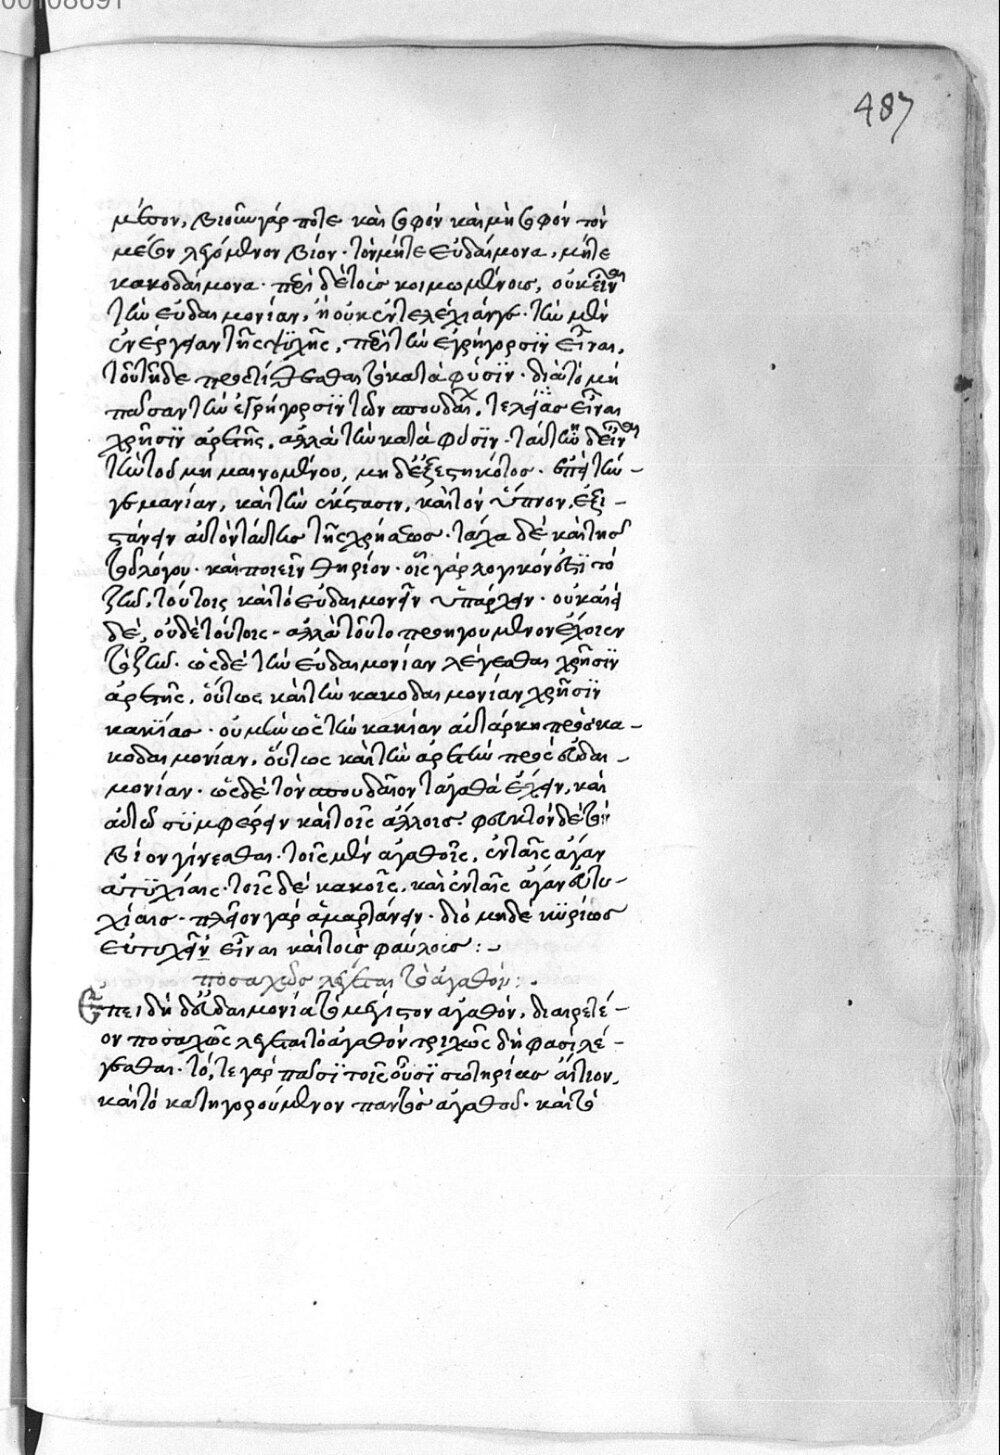 00108691
487
μέσον, βιοῦν γάρ ποτε καὶ σοφὸν καὶ μὴ σοφὸν τὸν
μέσον λεγόμενον βίον· τὸν μήτε εὐδαίμονα, μήτε
κακοδαίμονα· περὶ δὲ τοῖς κοιμωμένοις, οὐκ εἶναι
τὴν εὐδαιμονίαν, ἢ οὐκ ἐντελέχιάν γε· τὴν μὲν
ἐνέργειαν τῆς ψυχῆς, περὶ τὴν ἐγρήγορσϊν εἶναι,
τούτῃ δὲ προστίθεσθαι τὸ κατὰ φύσϊν· διὰ τὸ μὴ
πᾶσαν τὴν ἐγρήγορσϊν τῶν σπουδαί, τελείας εἶναι
χρῆσϊν ἀρετῆς, ἀλλὰ τὴν κατὰ φύσϊν· ταύτην δὲ εἶναι
τὴν τοῦ μὴ μαινομένου, μὴ δ' ἐξεστηκότος· ἐπεὶ τὴν
γε μανίαν, καὶ τὴν ἔκστασιν, καὶ τὸν ὕπνον, ἐξι-
στάνειν αὐτὸν ταύτης τῆς χρήσεως· τάχα δὲ καὶ τῆς
τοῦ λόγου· καὶ ποιεῖν θηρίον· οἷς γὰρ λογικόν ἐστϊ τὸ
ζῆν, τούτοις καὶ τὸ εὐδαιμονεῖν ὑπάρχειν· οὐκ ἀεὶ
δέ, οὐδὲ τούτοις· ἀλλὰ τοῦτο προηγουμένον ἔχοιεν
τὸ ζῆν· ὡς δὲ τὴν εὐδαιμονίαν λέγεσθαι χρῆσϊν
ἀρετῆς, οὕτως καὶ τὴν κακοδαιμονίαν χρῆσϊν
κακΐας· οὐ μὴν ὡς τὴν κακίαν αὐτάρκη πρὸς κα-
κοδαιμονίαν, οὕτως καὶ τὴν ἀρετὴν πρὸς εὐδαι-
μονίαν· ὡς δὲ τὸν σπουδαῖον τἀγαθὰ ἔχειν, καὶ
αὐτῷ συμφέρειν καὶ τοῖς ἄλλοις φευκτὸν δὲ τὸν
βίον γίνεσθαι· τοῖς μὲν ἀγαθοῖς, ἐν ταῖς ἄγαν
ἀτυχίαις· τοῖς δὲ κακοῖς, καὶ ἐν ταῖς ἄγαν εὐτυ-
χίαις· πλεῖον γὰρ ἁμαρτάνειν· διὸ μηδὲ κυρίως
εὐτυχεῖν εἶναι καὶ τοῖς φαύλοις:-
ποσαχῶς λέγεται τὸ ἀγαθόν:.
Ἐπειδὴ δ' εὐδαιμονία τὸ μέγιστον ἀγαθόν, διαιρετέ-
ον ποσαχῶς λέγεται τὸ ἀγαθόν τριχῶς δή φασι λέ-
γεσθαι· τό, τε γὰρ πᾶσϊ τοῖς οὖσϊ σωτηρίας αἴτιον,
καὶ τὸ κατηγορούμενον παντὸς ἀγαθοῦ· καὶ τὸ